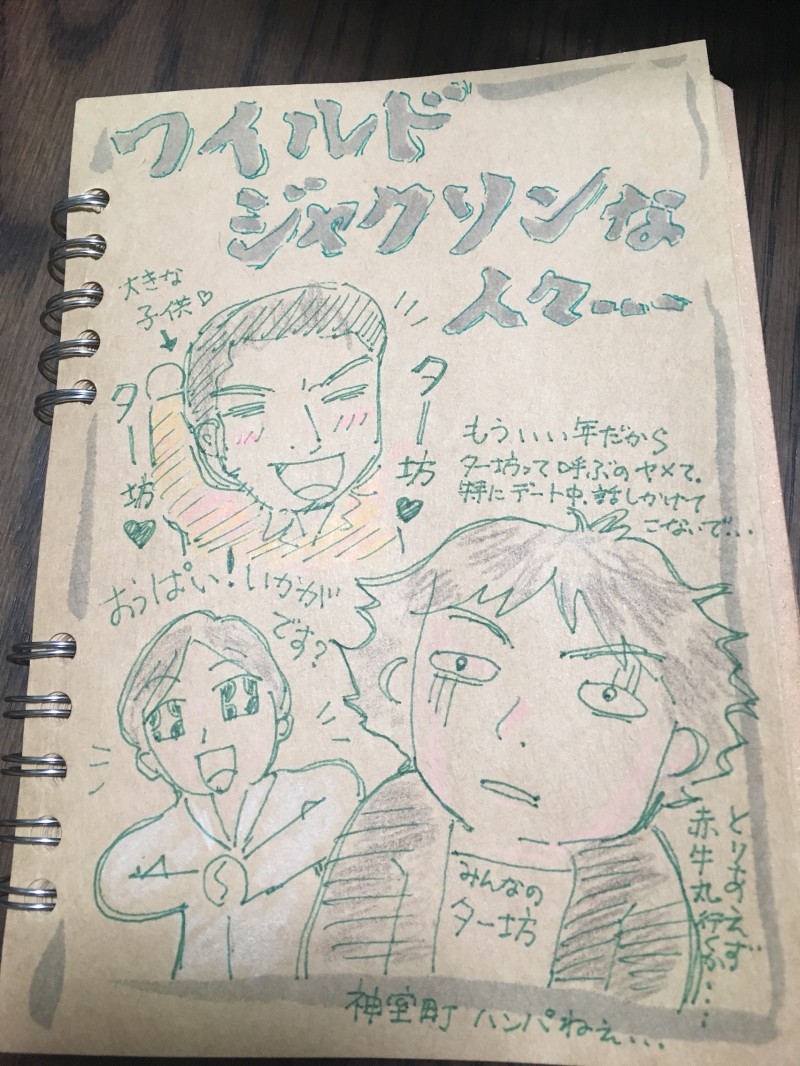 ワイルド
ジャクソンな
人々---
大きな
子供♡
ター坊♥
ター坊♥
もういい年だから
ター坊って呼ぶのヤメて。
特にデート中、話しかけて
こないで...
おっぱい！いかが
です？
みんなの
ター坊
とりあえず
赤牛丸行くか....
神室町 ハンパねぇ...